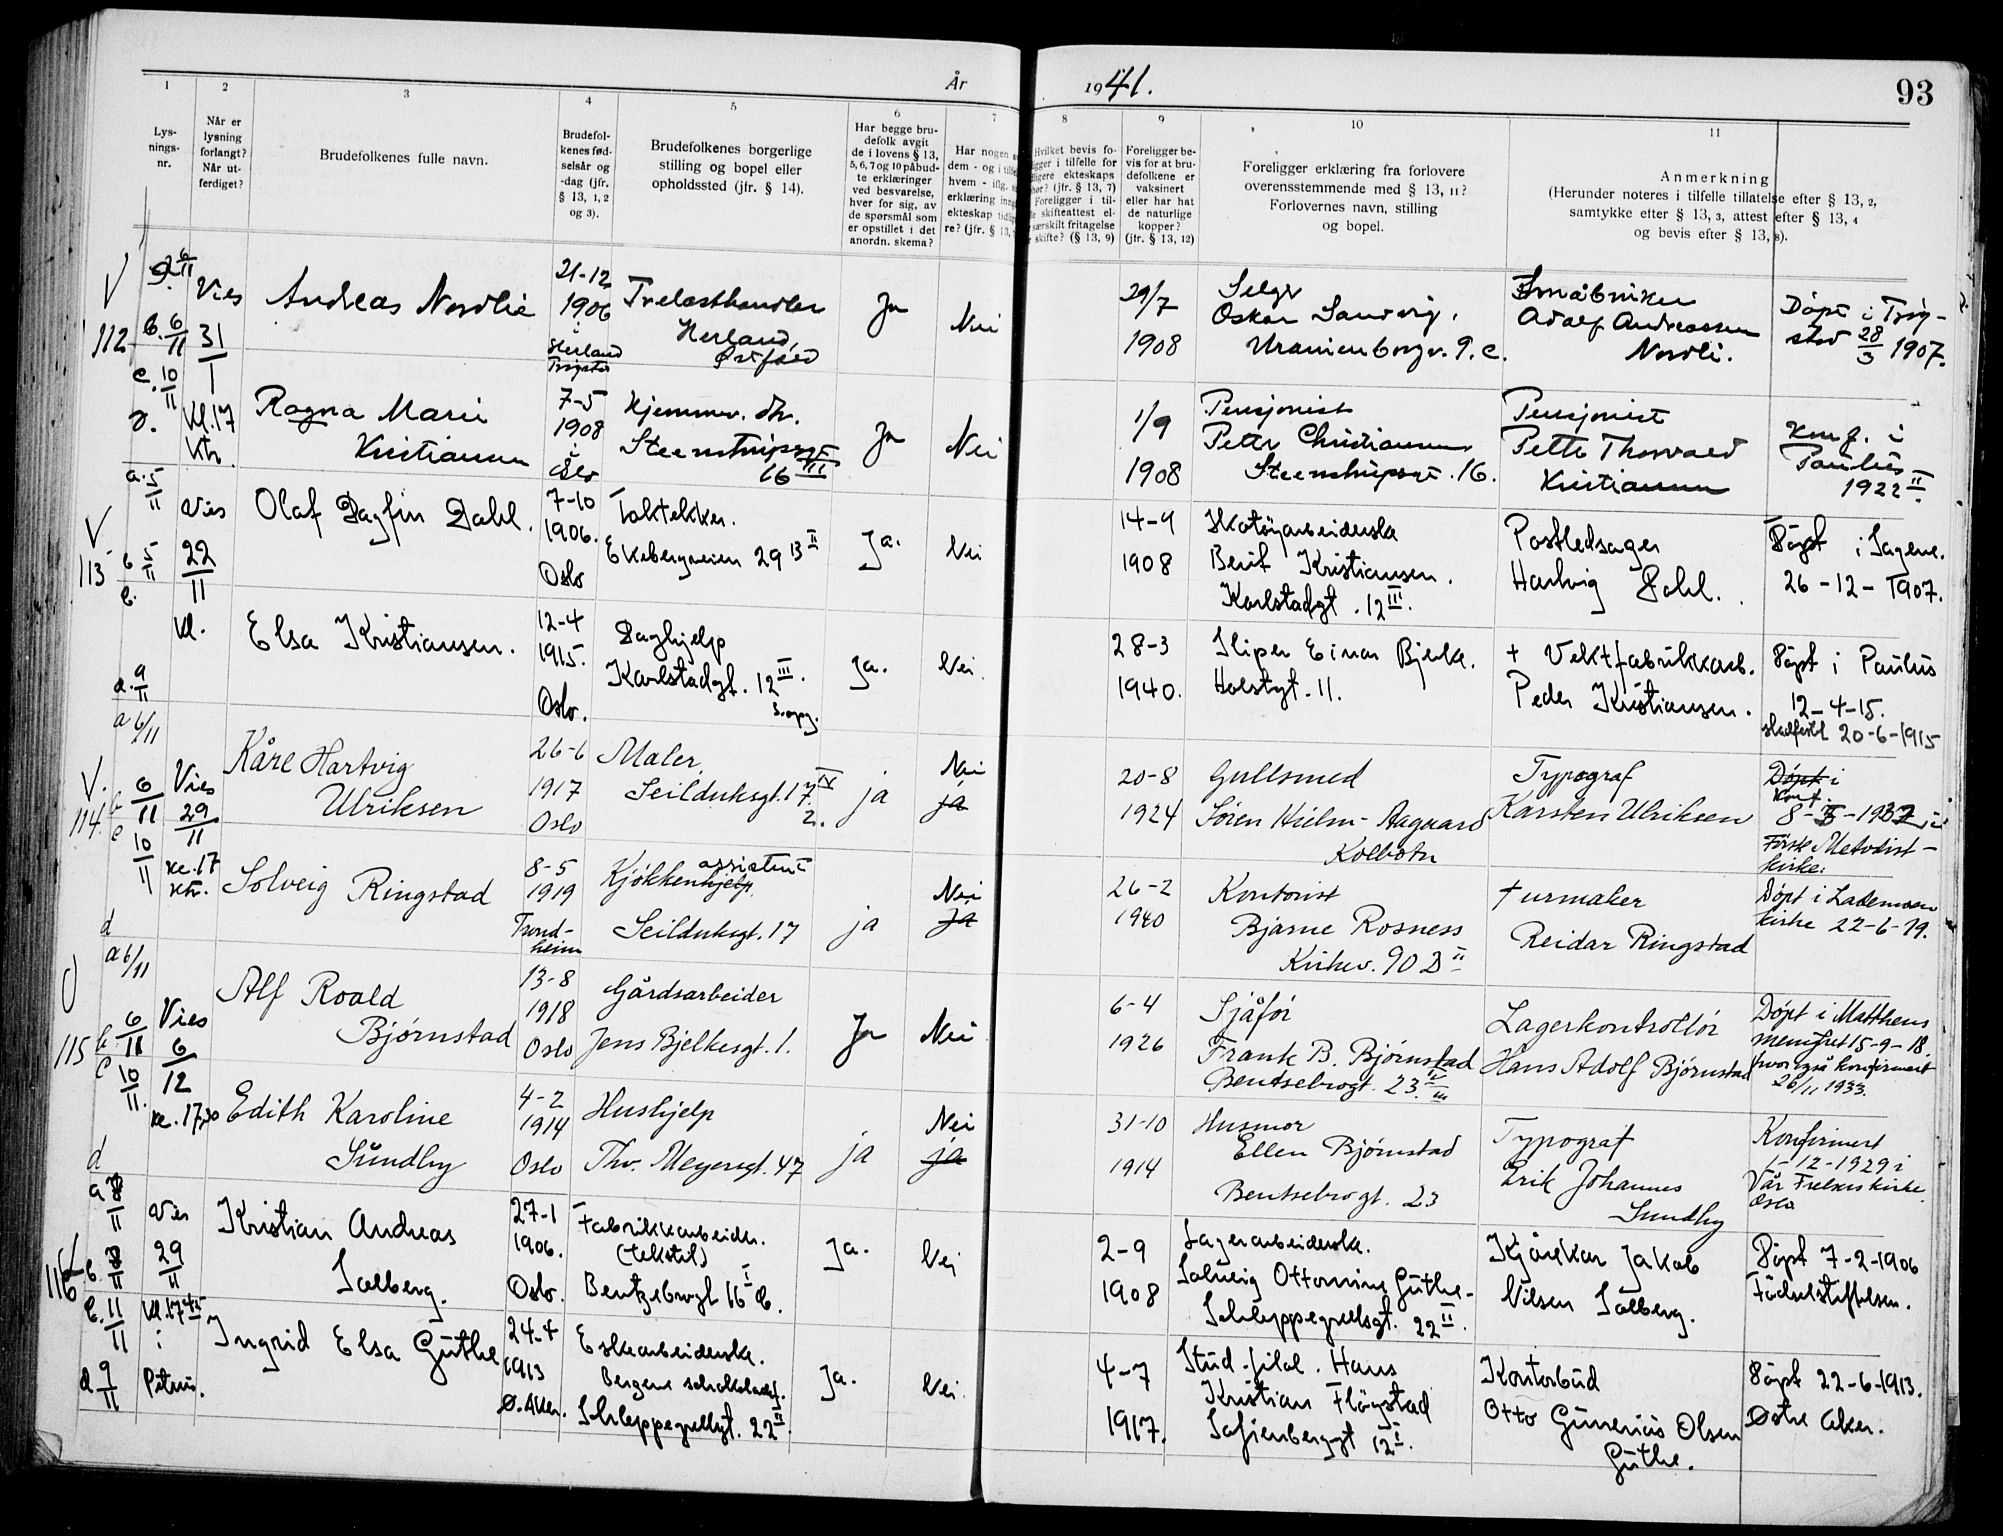 År 1941.
93
1 2 3 4 5 6 7 8 9 10 11
Lys-
nings-
nr.
Når er
lysning
forlangt?
Når ut-
ferdiget?
Brudefolkenes fulle navn.
Brudefol-
kenes fød-
selsår og
-dag (jfr.
§ 13, 1, 2
og 3).
Brudefolkenes borgerlige
stilling og bopel eller
opholdssted (jfr. § 14).
Har begge bru-
defolk avgit
de i lovens § 13,
5, 6, 7 og 10 påbud-
te erklæringer
ved besvarelse,
hver for sig, av
de spørsmål som
er opstillet i det
anordn. skema?
Har nogen
dem - og i
hvem - iflg.
erklæring
ekteskap
re? (jfr. § 13,
Hvilket bevis fo-
i tilfelle for
ekteskaps
(jfr. § 13, 7)
Foreligger i til-
skifteattest el-
særskilt fritagelse
skifte? (§ 13, 9)
Foreligger be-
vis for at bru-
defolkene er
vaksinert
eller har hat
de naturlige
kopper?
(jfr. § 13, 12)
Foreligger erklæring fra forlovere
overensstemmende med § 13, 11?
Forlovernes navn, stilling
og bopel.
Anmerkning
(Herunder noteres i tilfelle tillatelse efter § 13, 2,
samtykke efter § 13, 3, attest efter § 13, 4
og bevis efter § 13, 8).
112
b. 6/11
c. 10/11
Vies
31
1
Kl. 17
Ktr.
Andreas Nordlie
21-12
1906
i
Herland
Trygstad
Trelasthandler
Herland,
Østfold
Ja
Nei
29/7
1908
Selger
Oskar Sandvig,
Uranienborgv. 9. c.
Småbruker
Adolf Andreassen
Nordli.
Døpt i Tryg-
stad 28/3 1907.
d.
Ragna Marie
Kristiansen
7-5
1908
i
Oslo
Hjemmev. dtr.
Steenstrupsgt
16 III
Ja
Nei
1/9
1908
Pensjonist
Petter Christiansen
Steenstrupsgt. 16.
Pensjonist
Petter Thorvald
Kristiansen
Konf. i
Paulus
1922 II
113
a. 5/11
b 5/11
c.
Vies
22
11
Kl.
Olaf Dagfin Dahl.
7-10
1906.
Oslo
Taktekker.
Ekebergveien 29 13 II
Ja.
Nei
14-9
1908
Skotøyarbeiderske
Berit Kristiansen.
Karlstadgt. 12 III.
Postledsager
Hartvig Dahl.
Døpt i Sagene.
26-12-1907.
d. 9/11
Elsa Kristiansen.
12-4
1915.
Oslo.
Daghjelp
Karlstadgt. 12 III.
3. opg.
Ja.
Nei.
28-3
1940.
Sliper Einar Bjerk.
Holstgt. 11.
+ Vektfabrikkarb.
Peder Kristiansen.
Døpt i Paulus
12-4-15.
stadfest 20-6-1915
114
a 6/11
b 6/11
c 10/11
Vies
29
11
kl. 17
ktr.
Kåre Hartvig
Ulriksen
26-6
1917
Oslo
Maler,
Seilduksgt. 17 IV
2.
ja
Nei
ja
20-8
1924
Gullsmed
Søren Hielm-Aagaard
Kolbotn
Typograf
Karsten Ulriksen
Døpt i
Konf.
Første Metodist-
kirke.
d
Solveig Ringstad
8-5
1919
Trond-
heim
assistent
Kjøkkenhjelp.
Seilduksgt. 17
ja
Nei
ja
26-2
1940
Kontorist
Bjarne Rosness
Kirkev. 90 D II
+ urmaker
Reidar Ringstad
Døpt i Lademoen
kirke 22-6-19.
115
a 6/11
b. 6/11
c 10/11.
Vies
6
12
kl. 17,30
Alf Roald
Bjørnstad
13-8
1918
Oslo
Gårdsarbeider
Jens Bjelkesgt. 1.
Ja
Nei
6-4
1926
Sjåfør
Frank B. Bjørnstad
Bentsebrogt. 23.
Lagerkontrollør
Hans Adolf Bjørnstad
Døpt i Mattheus
menighet 15-9-18.
hvor også konfirmert
26/11 1933.
d
Edith Karoline
Sundby
4-2
1914
Oslo
Hushjelp
Thv. Meyersgt. 47
ja
Nei
ja
31-10
1914
Husmor
Ellen Bjørnstad
Bentsebrogt. 23
Typograf
Erik Johannes
Sundby
Konfirmert
1-12-1929 i
Vår Frelsers kirke
Oslo
116
a 8/11
b. 8/11
c. 11/11
Vies
29
11
Kl. 17 45
i
Petrus.
Kristian Andreas
Solberg.
27-1
1906.
Oslo.
Fabrikkarbeider.
(tekstil)
Bentzebrogt 16 I b.
Ja.
Nei
2-9
1908
Lagerarbeiderske.
Solveig Ottomine Güthe-
Schleppegrellsgt. 22 II.
Kjørekar Jakob
Nilsen Solberg.
Døpt 7-2-1906
Fødselsstiftelsen.
d 9/11
Ingrid Elsa Güthe
24-4
1913
Ø. Aker.
Eskearbeiderske.
Bergene schokoladef.
Schleppegrellsgt. 22 II.
Ja.
Nei
4-7
1917.
Stud. filol. Hans
Kristian Fløgstad
Sofienberggt 12 I.
Kontorbud
Otto Gunerius Olsen
Güthe.
Døpt 22-6-1913.
Østre Aker.